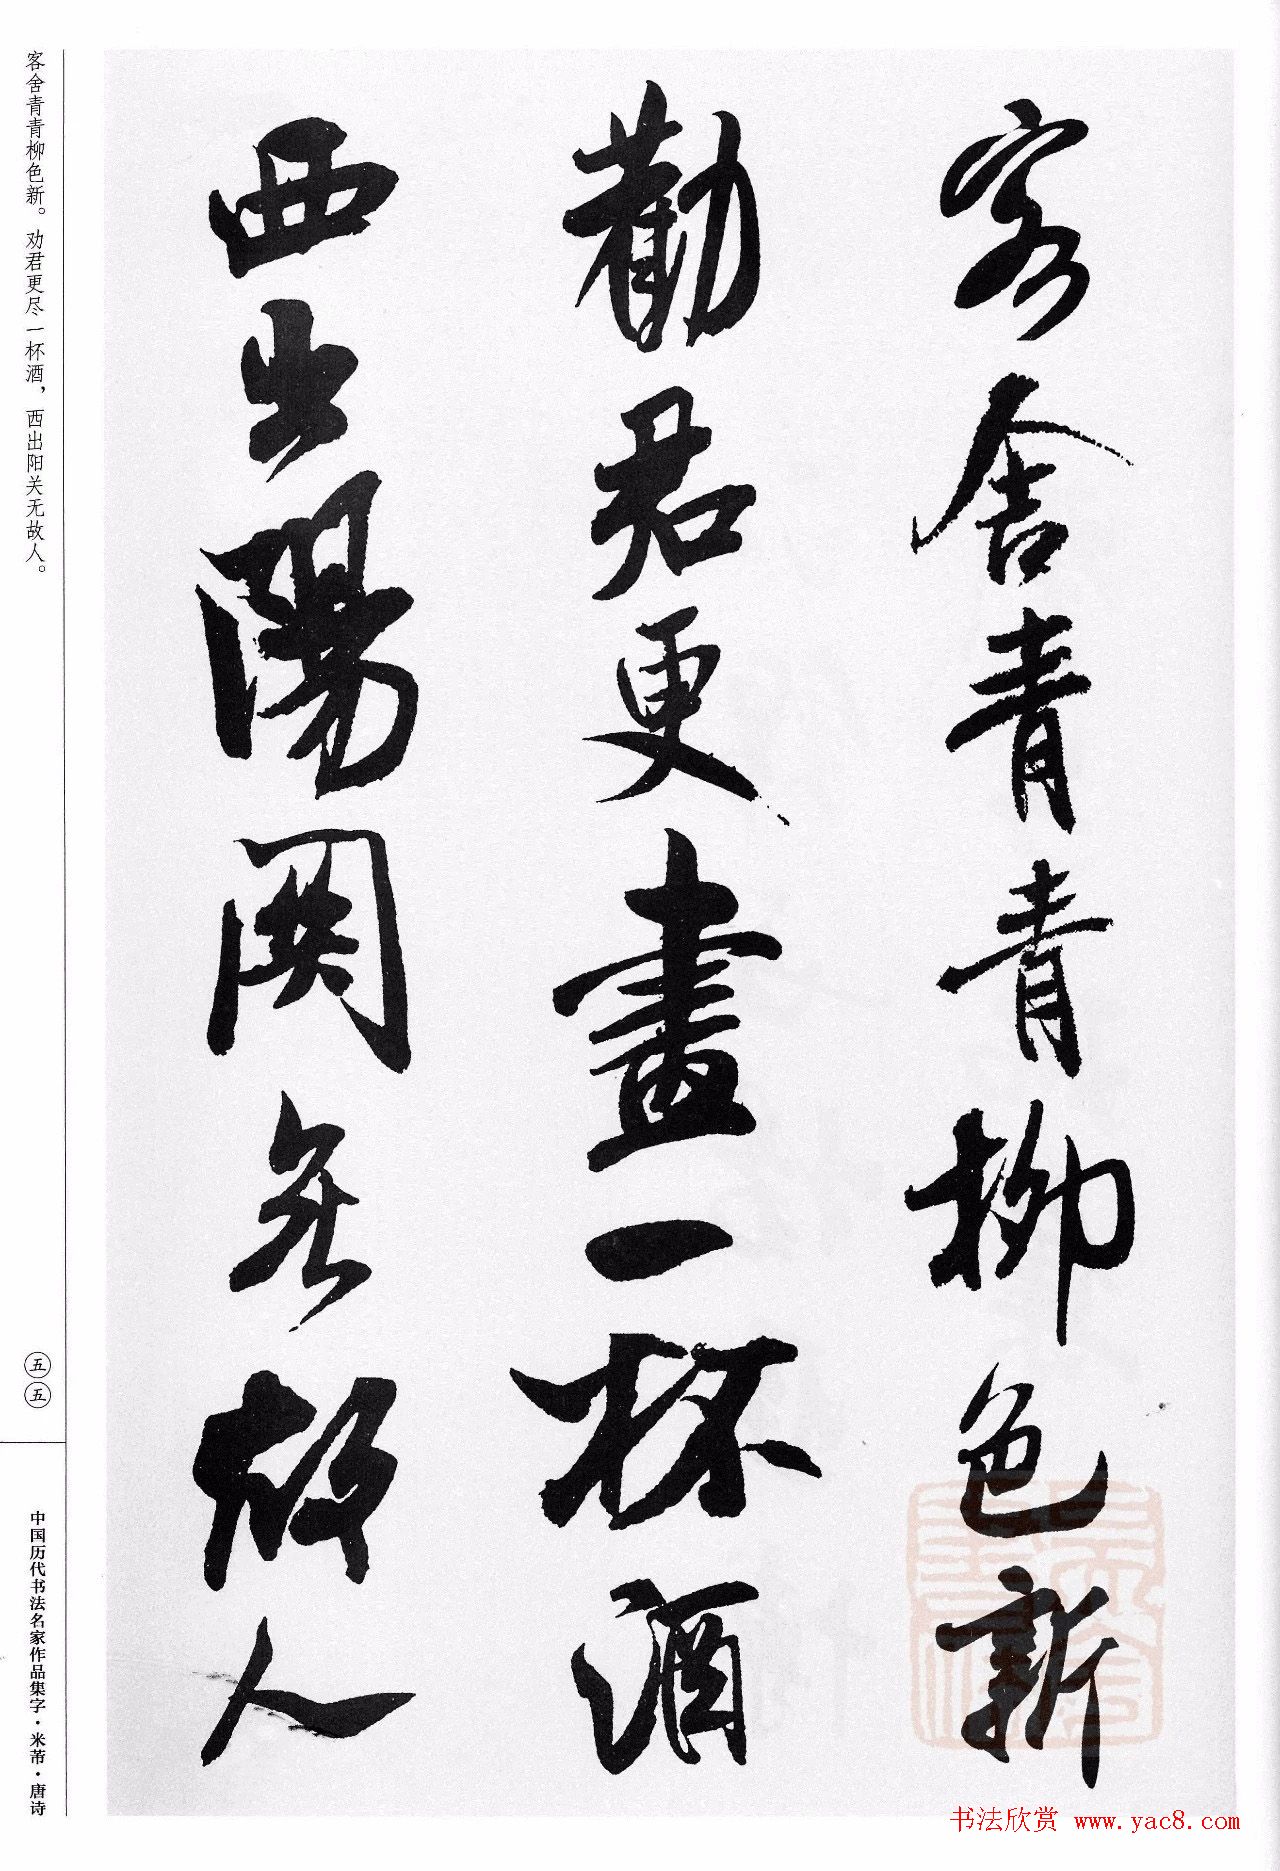 客舍青青柳色新
勸君更盡一杯酒
西出陽關無故人
客舍青青柳色新。劝君更尽一杯酒，西出阳关无故人。
五五
中国历代书法名家作品集字·米芾·唐诗
书法欣赏 www.yac8.com